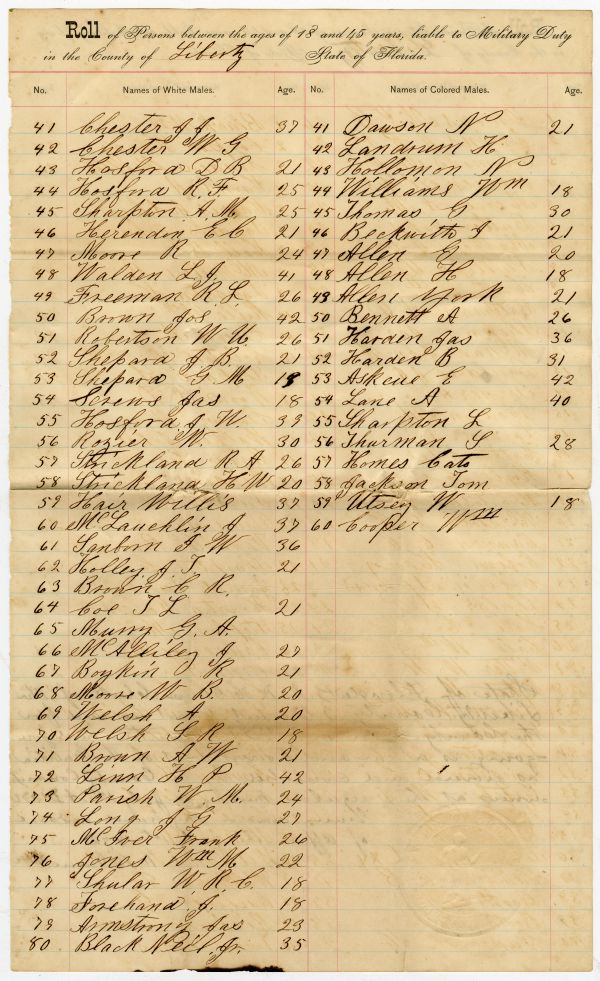 Roll of Persons between the ages of 18 and 45 years, liable to Military Duty
in the County of Liberty State of Florida.
No. Names of White Males. Age. No. Names of Colored Males. Age.
41 Chester J J 37 41 Dawson N 21
42 Chester W G 42 Landrum H
43 Hosford D B 21 43 Hollomon N
44 Hosford R. F. 25 44 Williams Wm 18
45 Sharpton A. M. 25 45 Thomas G 30
46 Herendon E C 21 46 Beckwith I 21
47 Moore R 24 47 Allen G 20
48 Walden L J. 41 48 Allen H 18
49 Freeman R. L. 26 49 Allen York 21
50 Brown Jos 42 50 Bennett A 26
51 Robertson W U. 26 51 Harden Jas 36
52 Shepard J B. 21 52 Harden B 31
53 Shepard G M 18 53 Askeue E 42
54 Screws Jas 18 54 Lane A 40
55 Hosford J W. 39 55 Sharpton L
56 Rozier W. 30 56 Thurman S 28
57 Strickland R A 26 57 Homes Cato
58 Strickland H W 20 58 Jackson Tom
59 Hair Willis 37 59 Utsey W 18
60 McLauchlin J 37 60 Cooper Wm
61 Sanborn I W 36
62 Holley J. T. 21
63 Brown C R.
64 Coe T L 21
65 Murry G. A.
66 McAlliley J 27
67 Boykin R 21
68 Moore W B. 20
69 Welsh A 20
70 Welsh S R 18
71 Brown A W 21
72 Linn H P 42
73 Parish W. M. 24
74 Long J G 27
75 McIver Frank 26
76 Jones Wm M 22
77 Shular W. R C. 18
78 Forehand J. 18
79 Armstrong Jas 23
80 Black Neil Jr. 35